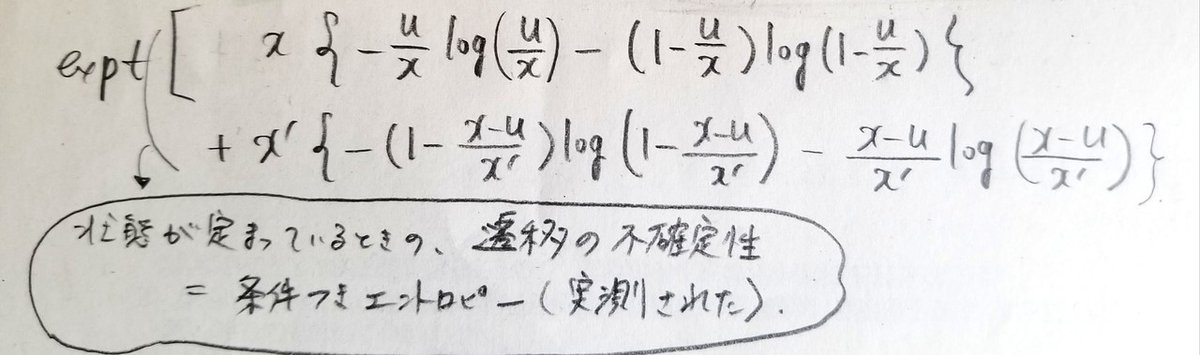 expt [ x { - u/x log(u/x) - (1 - u/x) log(1 - u/x) }
+ x' { - (1 - x-u/x') log(1 - x-u/x') - x-u/x' log(x-u/x') }
状態が定まっているときの、遷移の不確定性
= 条件つきエントロピー(実測された).